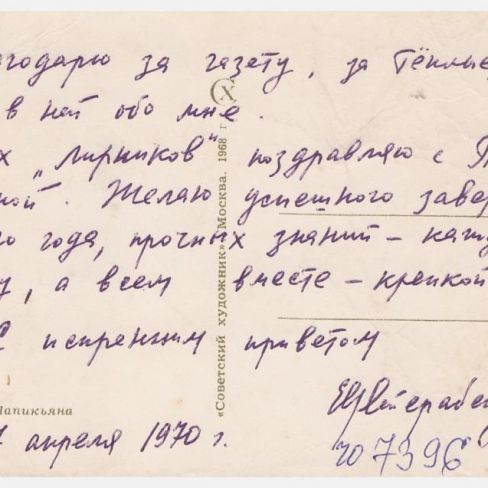 годарю за газету, за тёплые
в ней обо мне.
х „Лириков" поздравляю с П
ной. Желаю успешного завер
го года, прочных знаний – кажд
у, а всем вместе – крепкой
С искренним приветом
Папикьяна
7 апреля 1970 г.
«Советский художник». Москва. 1968 г.
Х
707396